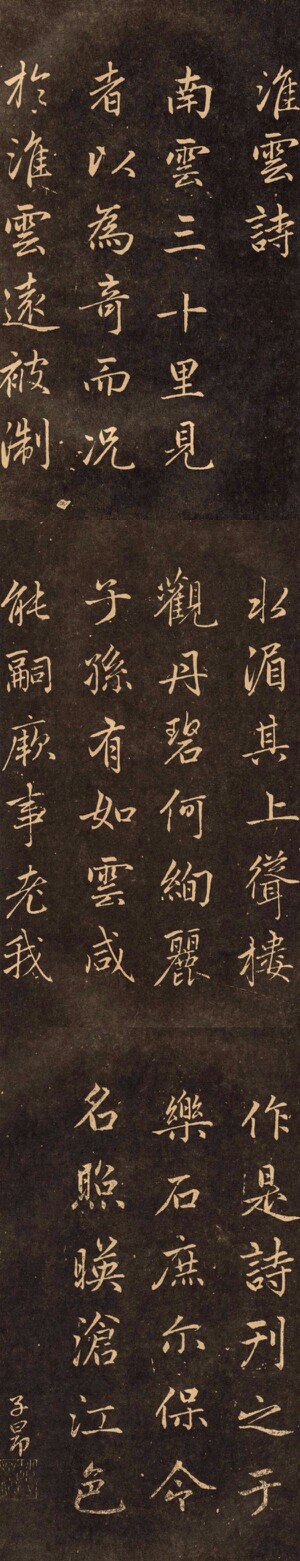 淮雲詩
南雲三十里見
者以為奇而况
於淮雲遠被淛
水湄其上聳樓
觀丹碧何絢麗
子孫有如雲咸
能嗣厥事老我
作是詩刊之于
樂石庶尒保令
名照暎滄江色
子昂